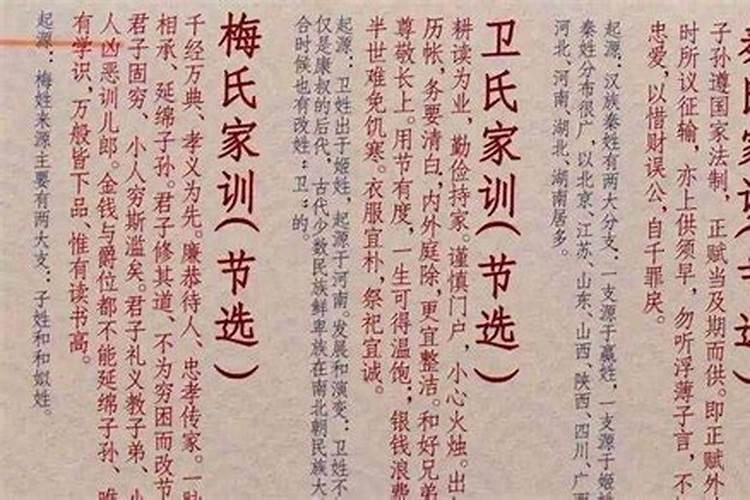 子孙遵国家法制，正赋当及期而供。即正赋外
时所议征输，亦上供须早，勿听浮薄子言，不
忠爱，以惜财误公，自干罪戾。
起源：汉族秦姓有两大分支：一支源于嬴姓，一支源于姬姓
秦姓分布很广，以北京、江苏、山东、山西、陕西、四川、广西
河北、河南、湖北、湖南居多。
卫氏家训（节选）
耕读为业，勤俭持家。谨慎门户，小心火烛。出
历帐，务要清白，内外庭除，更宜整洁。和好兄弟
尊敬长上。用节有度，一生可得温饱；银钱浪费
半世难免饥寒。衣服宜朴，祭祀宜诚。
起源：卫姓出于姬姓，起源于河南。发展和演变：卫姓不
仅是康叔的后代，古代少数民族鲜卑族在南北朝民族大
合时候也有改姓“卫”的。
梅氏家训（节选）
千经万典、孝义为先。廉恭待人、忠孝传家。一
相承、延绵子孙。君子修其道、不为穷困而改节
君子固穷、小人穷斯滥矣。君子礼义教子弟、小
人凶恶训儿郎。金钱与爵位都不能延绵子孙、唯
有学识，万般皆下品、惟有读书高。
起源：梅姓来源主要有两大支：子姓和和姒姓。